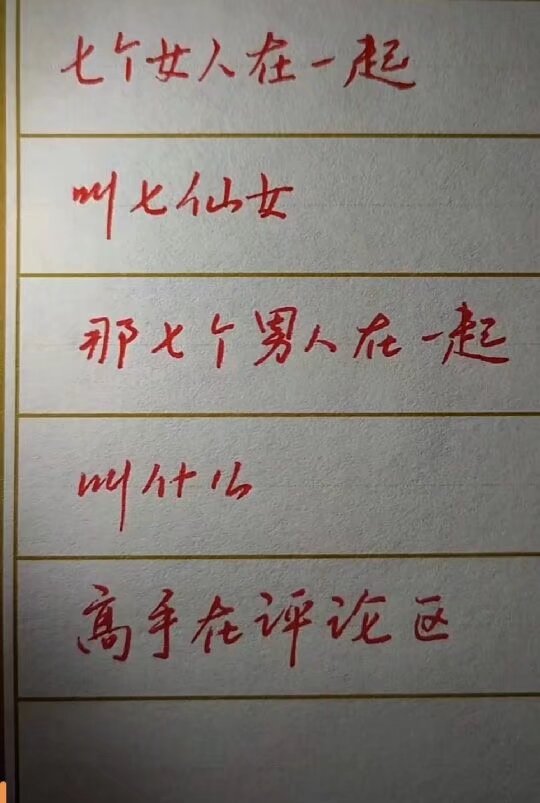 七个女人在一起
叫七仙女
那七个男人在一起
叫什么
高手在评论区